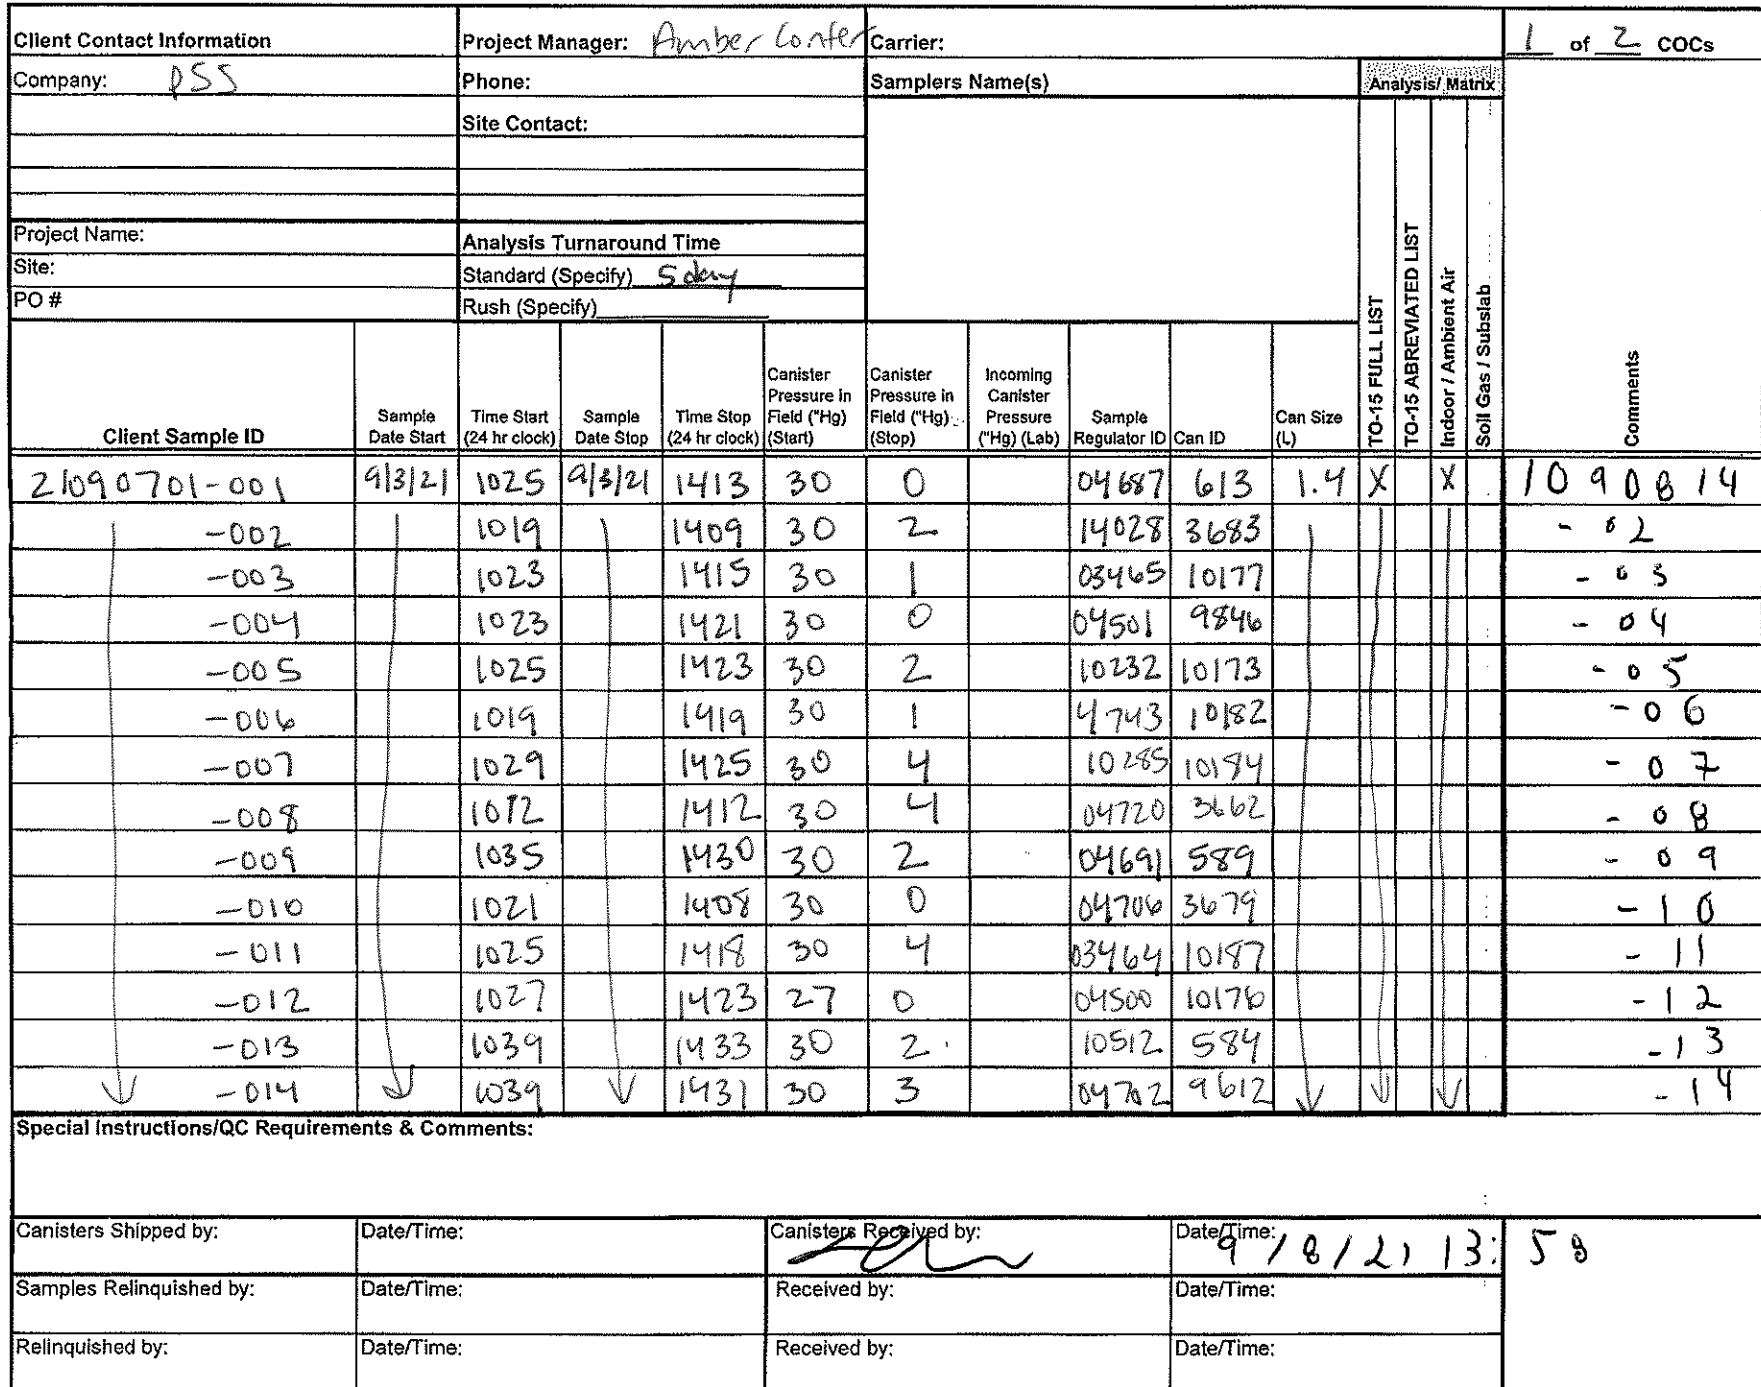 Client Contact Information Project Manager: Amber Confer Carrier: 1 of 2 COCs
Company: PSS Phone: Samplers Name(s) Analysis/ Matrix
Site Contact:
Project Name: Analysis Turnaround Time
Site: Standard (Specify) 5 day
PO # Rush (Specify)
Client Sample ID Sample Date Start Time Start (24 hr clock) Sample Date Stop Time Stop (24 hr clock) Canister Pressure in Field ("Hg) (Start) Canister Pressure in Field ("Hg) (Stop) Incoming Canister Pressure ("Hg) (Lab) Sample Regulator ID Can ID Can Size (L) TO-15 FULL LIST TO-15 ABREVIATED LIST Indoor / Ambient Air Soil Gas / Subslab Comments
21090701-001 9/3/21 1025 9/3/21 1413 30 0 04687 613 1.4 X X 1090814
-002 1019 1409 30 2 14028 3683 -02
-003 1023 1415 30 1 03465 10177 -03
-004 1023 1421 30 0 04501 9846 -04
-005 1025 1423 30 2 10232 10173 -05
-006 1019 1419 30 1 4743 10182 -06
-007 1029 1425 30 4 10285 10184 -07
-008 1012 1412 30 4 04720 3662 -08
-009 1035 1430 30 2 04691 589 -09
-010 1021 1408 30 0 04706 3679 -10
-011 1025 1418 30 4 03464 10187 -11
-012 1027 1423 27 0 04500 10176 -12
-013 1039 1433 30 2 10512 584 -13
-014 1039 1431 30 3 04702 9612 -14
Special Instructions/QC Requirements & Comments:
Canisters Shipped by: Date/Time: Canisters Received by: Date/Time: 9/8/21 13:58
Samples Relinquished by: Date/Time: Received by: Date/Time:
Relinquished by: Date/Time: Received by: Date/Time: